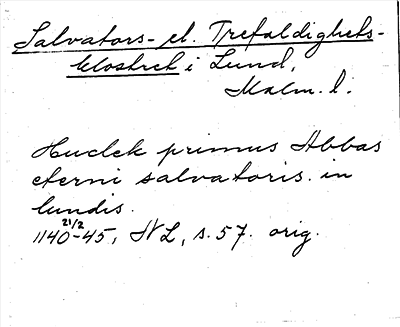 Salvators- el. Trefaldighets-
klostret i Lund,
Malm. l.
Hudek primus Abbas
eterni salvatoris in
lundis.
1140 21/2 -45, NL, s. 57. orig.